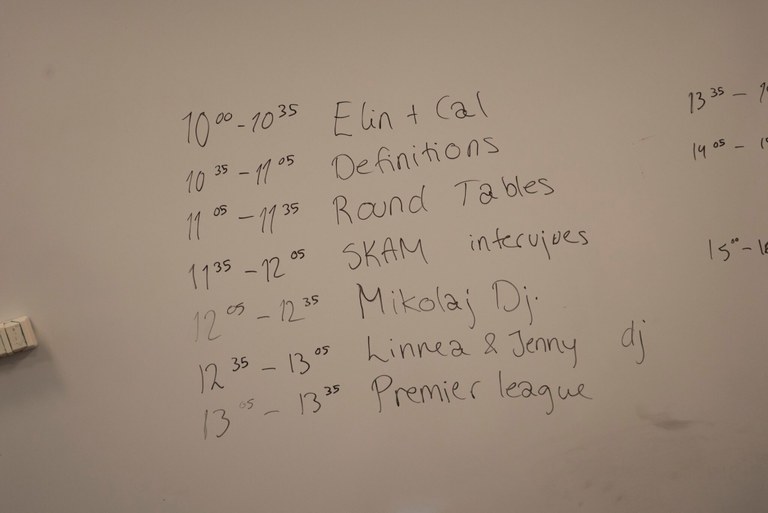 10⁰⁰ - 10³⁵ Elin + Cal
10³⁵ - 11⁰⁵ Definitions
11⁰⁵ - 11³⁵ Round Tables
11³⁵ - 12⁰⁵ SKAM intervjoes
12⁰⁵ - 12³⁵ Mikolaj Dj.
12³⁵ - 13⁰⁵ Linnea & Jenny dj
13⁰⁵ - 13³⁵ Premier league
13³⁵ -
14⁰⁵ -
15⁰⁰ -